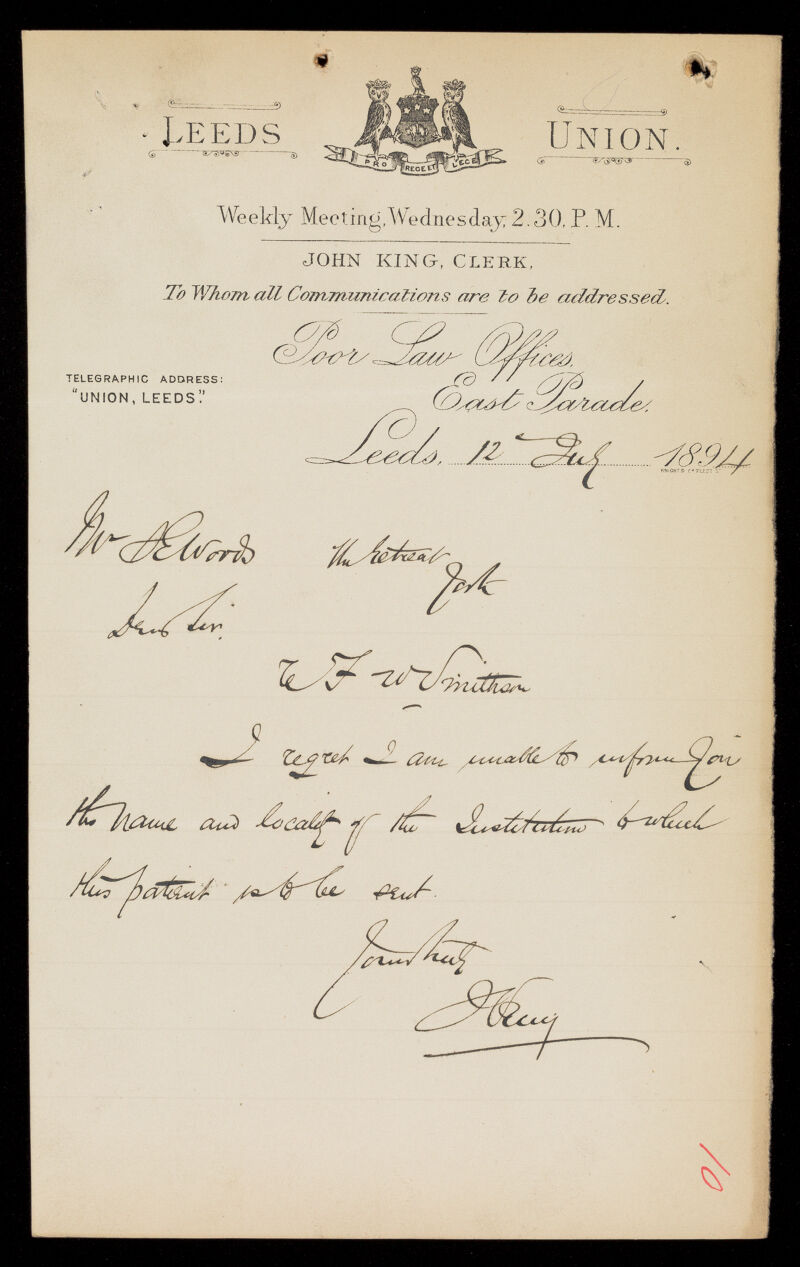 LEEDS UNION.
PRO REGE ET LEGE
Weekly Meeting, Wednesday, 2.30, P. M.
JOHN KING, CLERK,
To Whom all Communications are to be addressed.
Poor Law Offices,
TELEGRAPHIC ADDRESS:
"UNION, LEEDS."
East Parade.
Leeds, 12th July 1894
Mr Woods The Retreat
York
Dear Sir.
F W Smithson
I regret I am unable to inform You
the name and locality of the Institution to which
this patient is to be sent.
Yours truly
J King
10